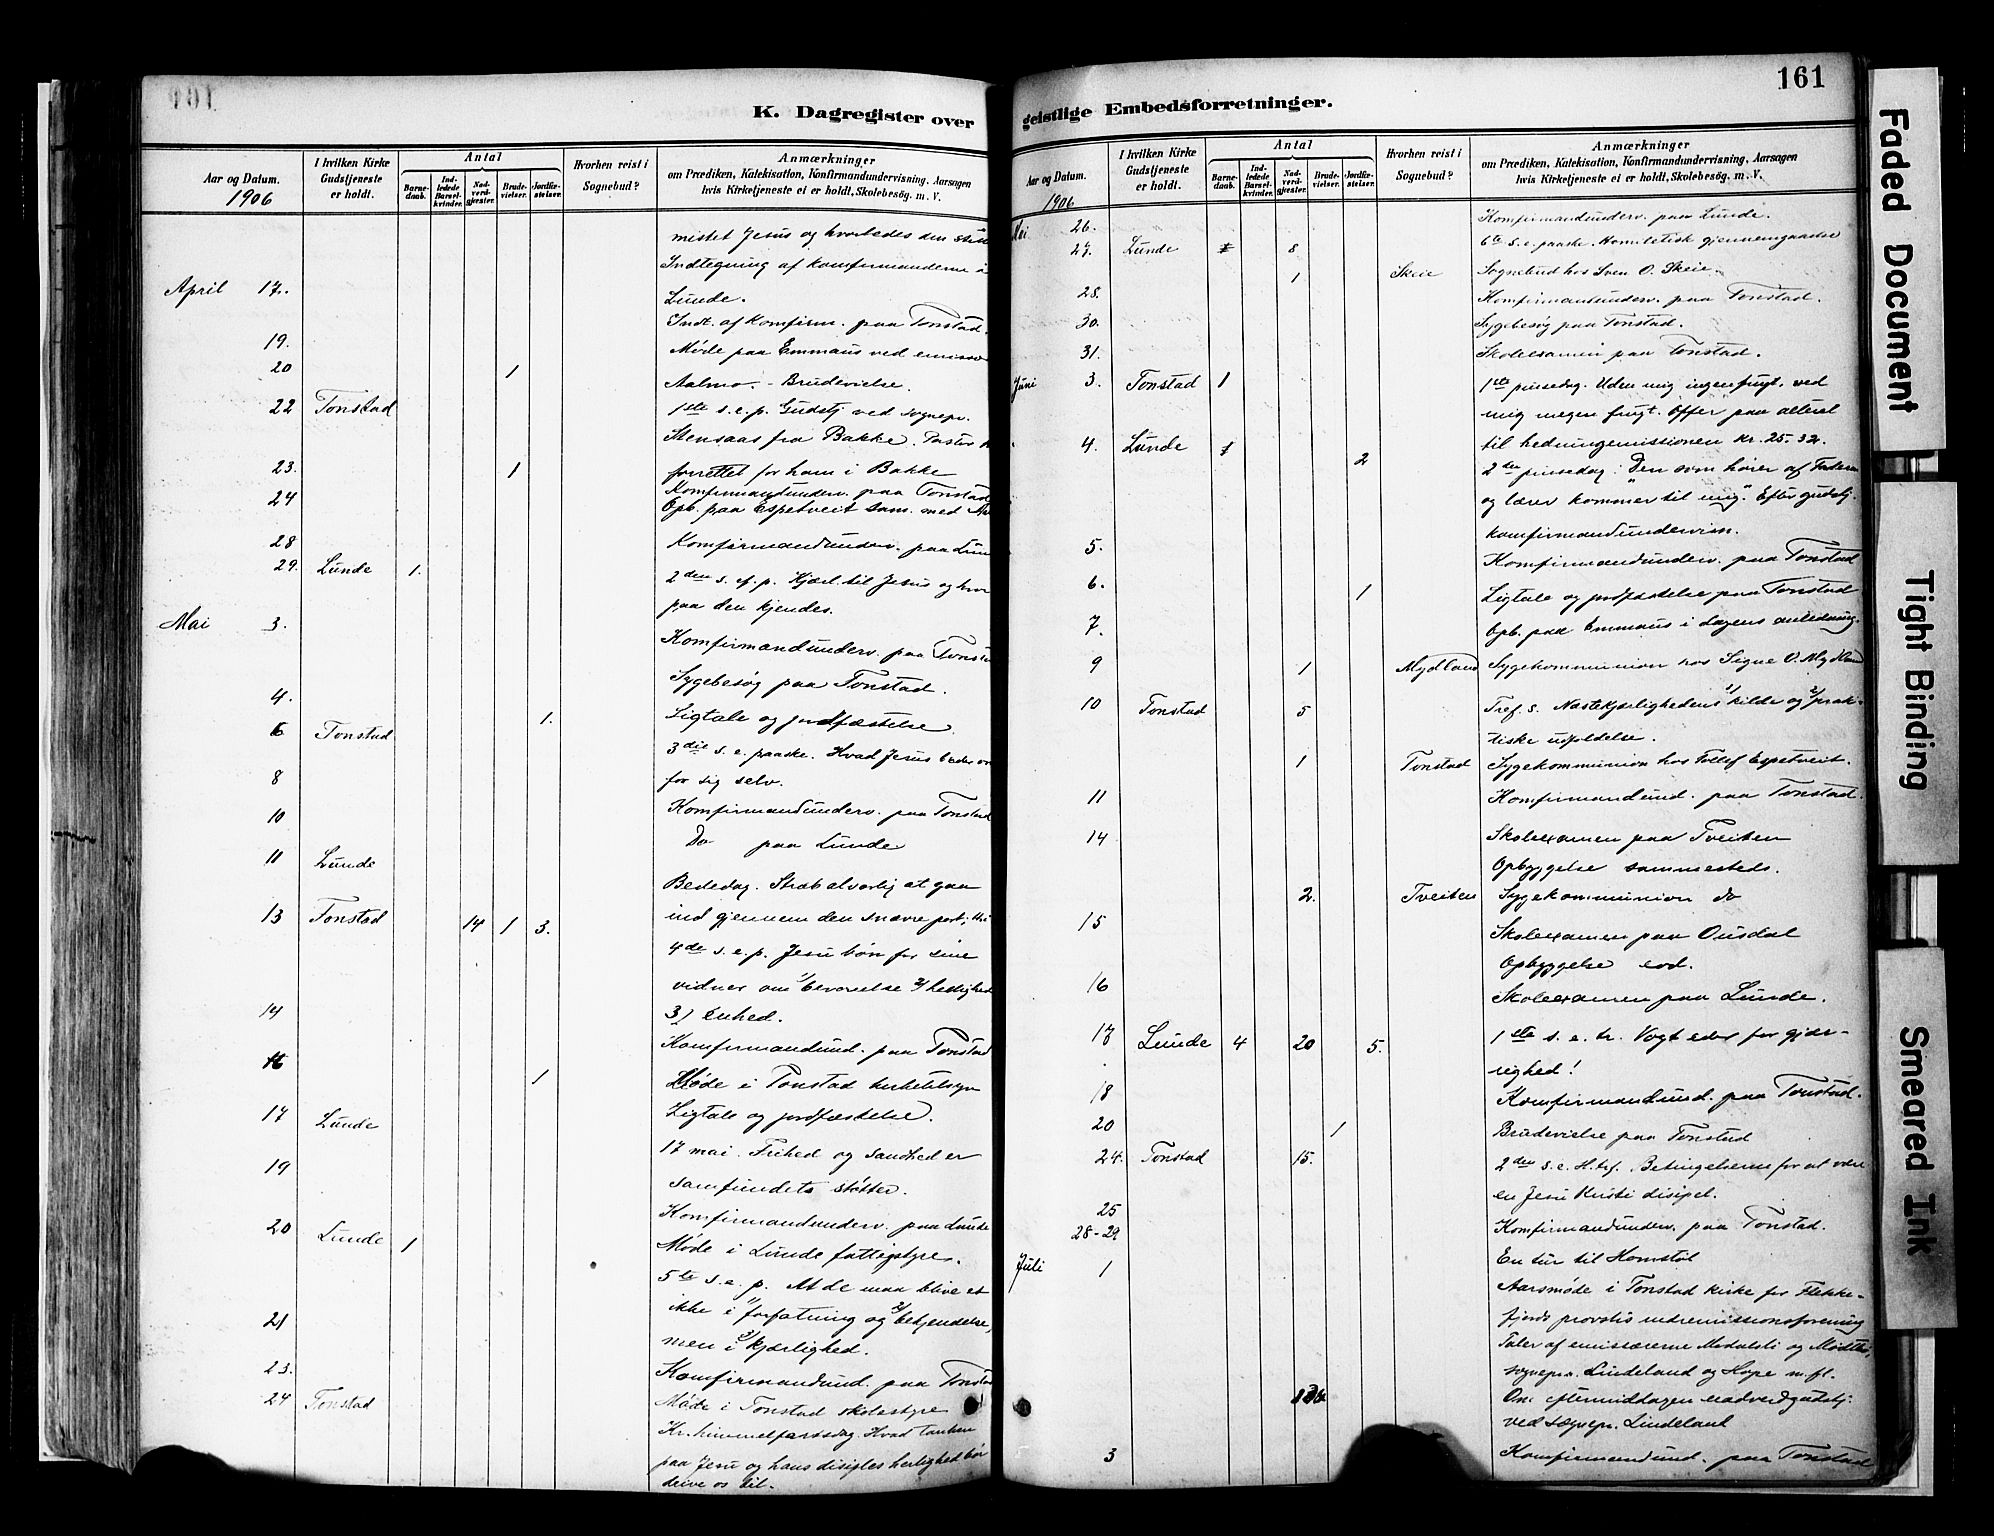 161
K. Dagregister over
Aar og Datum.
1906
I hvilken Kirke Gudstjeneste er holdt.
Antal
Barne-daab.
Ind-ledede Barsel-kvinder.
Nad-verd-gjester.
Brude-vielser.
Jordfæ-stelser.
Hvorhen reist i Sognebud?
Anmærkninger
om Prædiken, Katekisation, Konfirmandundervisning, Aarsagen
hvis Kirketjeneste ei er holdt, Skolebesøg. m. V.
mistet Jesus og hvorledes den
April 17. Indtegning af konfirmanderne i
Lunde.
19. Indt. af konfirm. paa Tonstad.
20 1 Møde paa Emmaus ved
Aalmo. - Brudevielse.
22 Tonstad 1ste s.e.p. Gudstj ved sognepr.
Stensaas fra Bakke. Pastor
23. 1 forrettet for ham i Bakke
24 Konfirmandunderv. paa Tonstad
Opb. paa Espetveit sam. med
28 Konfirmandunderv. paa
29. Lunde 1. 2den s. ef. p. Kjærl. til Jesus og
paa den kjendes.
Mai 3. Konfirmandunderv. paa
4. Sygebesøg paa Tonstad.
1. Ligtale og jordfæstelse
6 Tonstad 3die s. e. paaske. Hvad Jesus beder
for sig selv.
8 Konfirmandunderv. paa Tonstad
10 Do paa Lunde
11 Lunde Bededag. Stræb alvorlig at gaa
ind gjennem den snævre port;
13 Tonstad 14 1 3. 4de s. e. p. Jesu bøn for sine
vidner om 1/ bevarelse 2/ hellighed
3/ Enhed.
14 Konfirmandund. paa Tonstad
16 Møde i Tonstad
1 Ligtale og jordfæstelse.
17 Lunde 17 mai. Frihed og sandhed er
samfundets støtter.
19 Konfirmandunderv. paa Lunde
Møde i Lunde fattigstyre.
20 Lunde 1 5te s. e. p. At de maa blive et
ikke i 1/ forfatning og 2/ bekjendelse,
men i 3/ kjærlighed.
21 Konfirmandund. paa
23. Møde i Tonstad skolestyre
24 Tonstad Kr. himmelfartsdag. Hvad tanken
paa Jesu og hans disiples herlighed bør
drive os til.
161
geistlige Embedsforretninger.
Aar og Datum.
1906
I hvilken Kirke Gudstjeneste er holdt.
Antal
Barne-daab.
Ind-ledede Barsel-kvinder.
Nad-verd-gjester.
Brude-vielser.
Jordfæ-stelser.
Hvorhen reist i Sognebud?
Anmærkninger
om Prædiken, Katekisation, Konfirmandundervisning, Aarsagen
hvis Kirketjeneste ei er holdt, Skolebesøg. m. V.
Mai 26. Konfirmandunderv. paa Lunde.
27. Lunde 1 8 6te s. e. paaske. Homiletisk gjennemgaaelse
1 Skeie Sognebud hos Sven O. Skeie.
28. Konfirmandunderv. paa Tonstad.
30. Sygebesøg paa Tonstad.
31. Skoleexamen paa Tonstad.
Juni 3. Tonstad 1 1ste pinsedag. Uden mig ingen frugt, ved
mig megen frugt. Offer paa alteret
til hedningemissionen kr. 25-32.
4. Lunde 1 2 2den pinsedag: "Den som hører af Faderen
og lærer kommer til mig". Efter gudstj.
konfirmandundervisn.
5. Konfirmandunderv. paa Tonstad
6. 1 Ligtale og jordfæstelse paa Tonstad
7. Opb. paa Emmaus i dagens anledning.
9 1 Mydland Sygekommunion hos Signe O. Mydland
10 Tonstad 5 Tref. s. Næstekjærlighedens 1/ kilde og 2/ prak-
tiske udfoldelse.
1 Tonstad Sygekommunion hos Tollef Espetveit.
11 Konfirmandund. paa Tonstad.
14 Skoleexamen paa Tveiten
Opbyggelse sammesteds.
2. Tveiten Sygekommunion do
15 Skoleexamen paa Ousdal
Opbyggelse eod.
16 Skoleexamen paa Lunde.
17 Lunde 4 20 5. 1ste s. e. tr. Vogt eder for gjer-
righed!
18 Konfirmandund. paa Tonstad.
20 1 Brudevielse paa Tonstad
24. Tonstad 15. 2den s. e. H. tref. Betingelserne for at være
en Jesu Kristi disipel.
25 Konfirmandunderv. paa Tonstad.
28-29 En tur til Homstøl
Juli 1 Aarsmøde i Tonstad kirke for Flekke-
fjords provstis indremissionsforening
Taler af emissærerne Medalsti og
sognepr. Lindeland og Hope m. fl.
Om eftermiddagen nadverdgudstj.
ved sognepr. Lindeland
3 Konfirmandund. paa Tonstad
Faded Document
Tight Binding
Smeared Ink